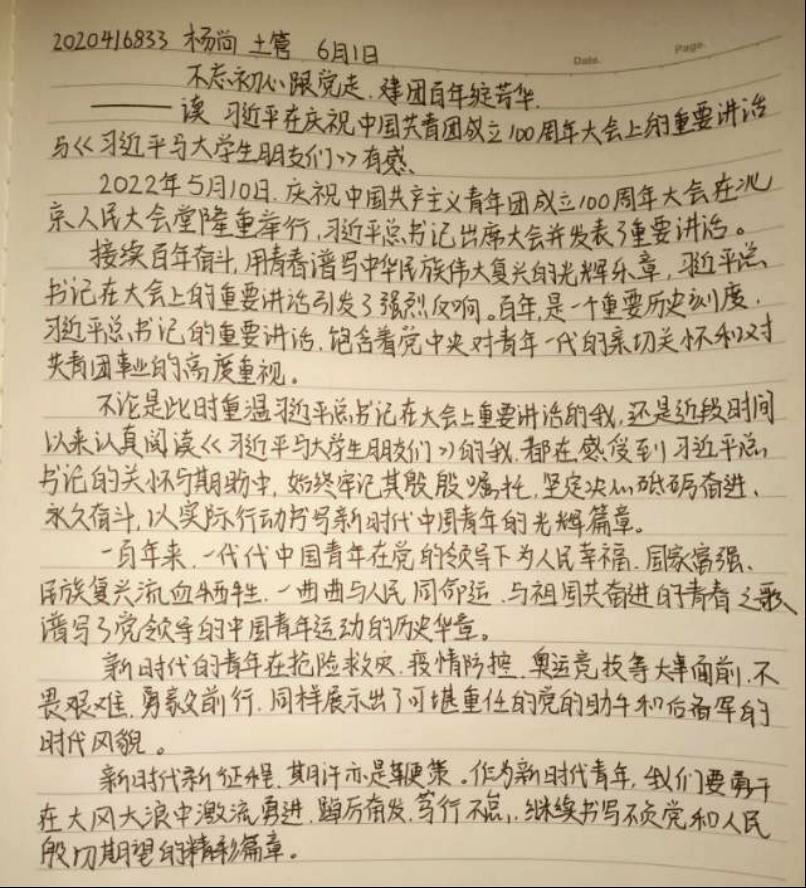 2020416833 杨尚 土管 6月1日
Date.
Page.
不忘初心跟党走.建团百年绽芳华.
——读 习近平在庆祝中国共青团成立100周年大会上的重要讲话
与《习近平与大学生朋友们》有感、
2022年5月10日.庆祝中国共产主义青年团成立100周年大会在北
京人民大会堂隆重举行,习近平总书记出席大会并发表了重要讲话。
接续百年奋斗,用青春谱写中华民族伟大复兴的光辉乐章,习近平总
书记在大会上的重要讲话引发了强烈反响。百年,是一个重要历史刻度.
习近平总书记的重要讲话.饱含着党中央对青年一代的亲切关怀和对
共青团事业的高度重视。
不论是此时重温习近平总书记在大会上重要讲话的我,还是近段时间
以来认真阅读《习近平与大学生朋友们》的我.都在感受到习近平总
书记的关怀与期盼中,始终牢记其殷殷嘱托,坚定决心砥砺奋进、
永久奋斗,以实际行动书写新时代中国青年的光辉篇章。
一百年来.一代代中国青年在党的领导下为人民幸福.国家富强、
民族复兴流血牺牲.一曲曲与人民同命运.与祖国共奋进的青春之歌
谱写了党领导的中国青年运动的历史华章。
新时代的青年在抢险救灾.疫情防控.奥运竞技等大事面前,不
畏艰难.勇毅前行.同样展示出了可堪重任的党的助手和后备军的
时代风貌。
新时代新征程.期许亦是鞭策。作为新时代青年,我们要勇于
在大风大浪中激流勇进.踔厉奋发.笃行不怠.继续书写不负党和人民
殷切期望的精彩篇章。